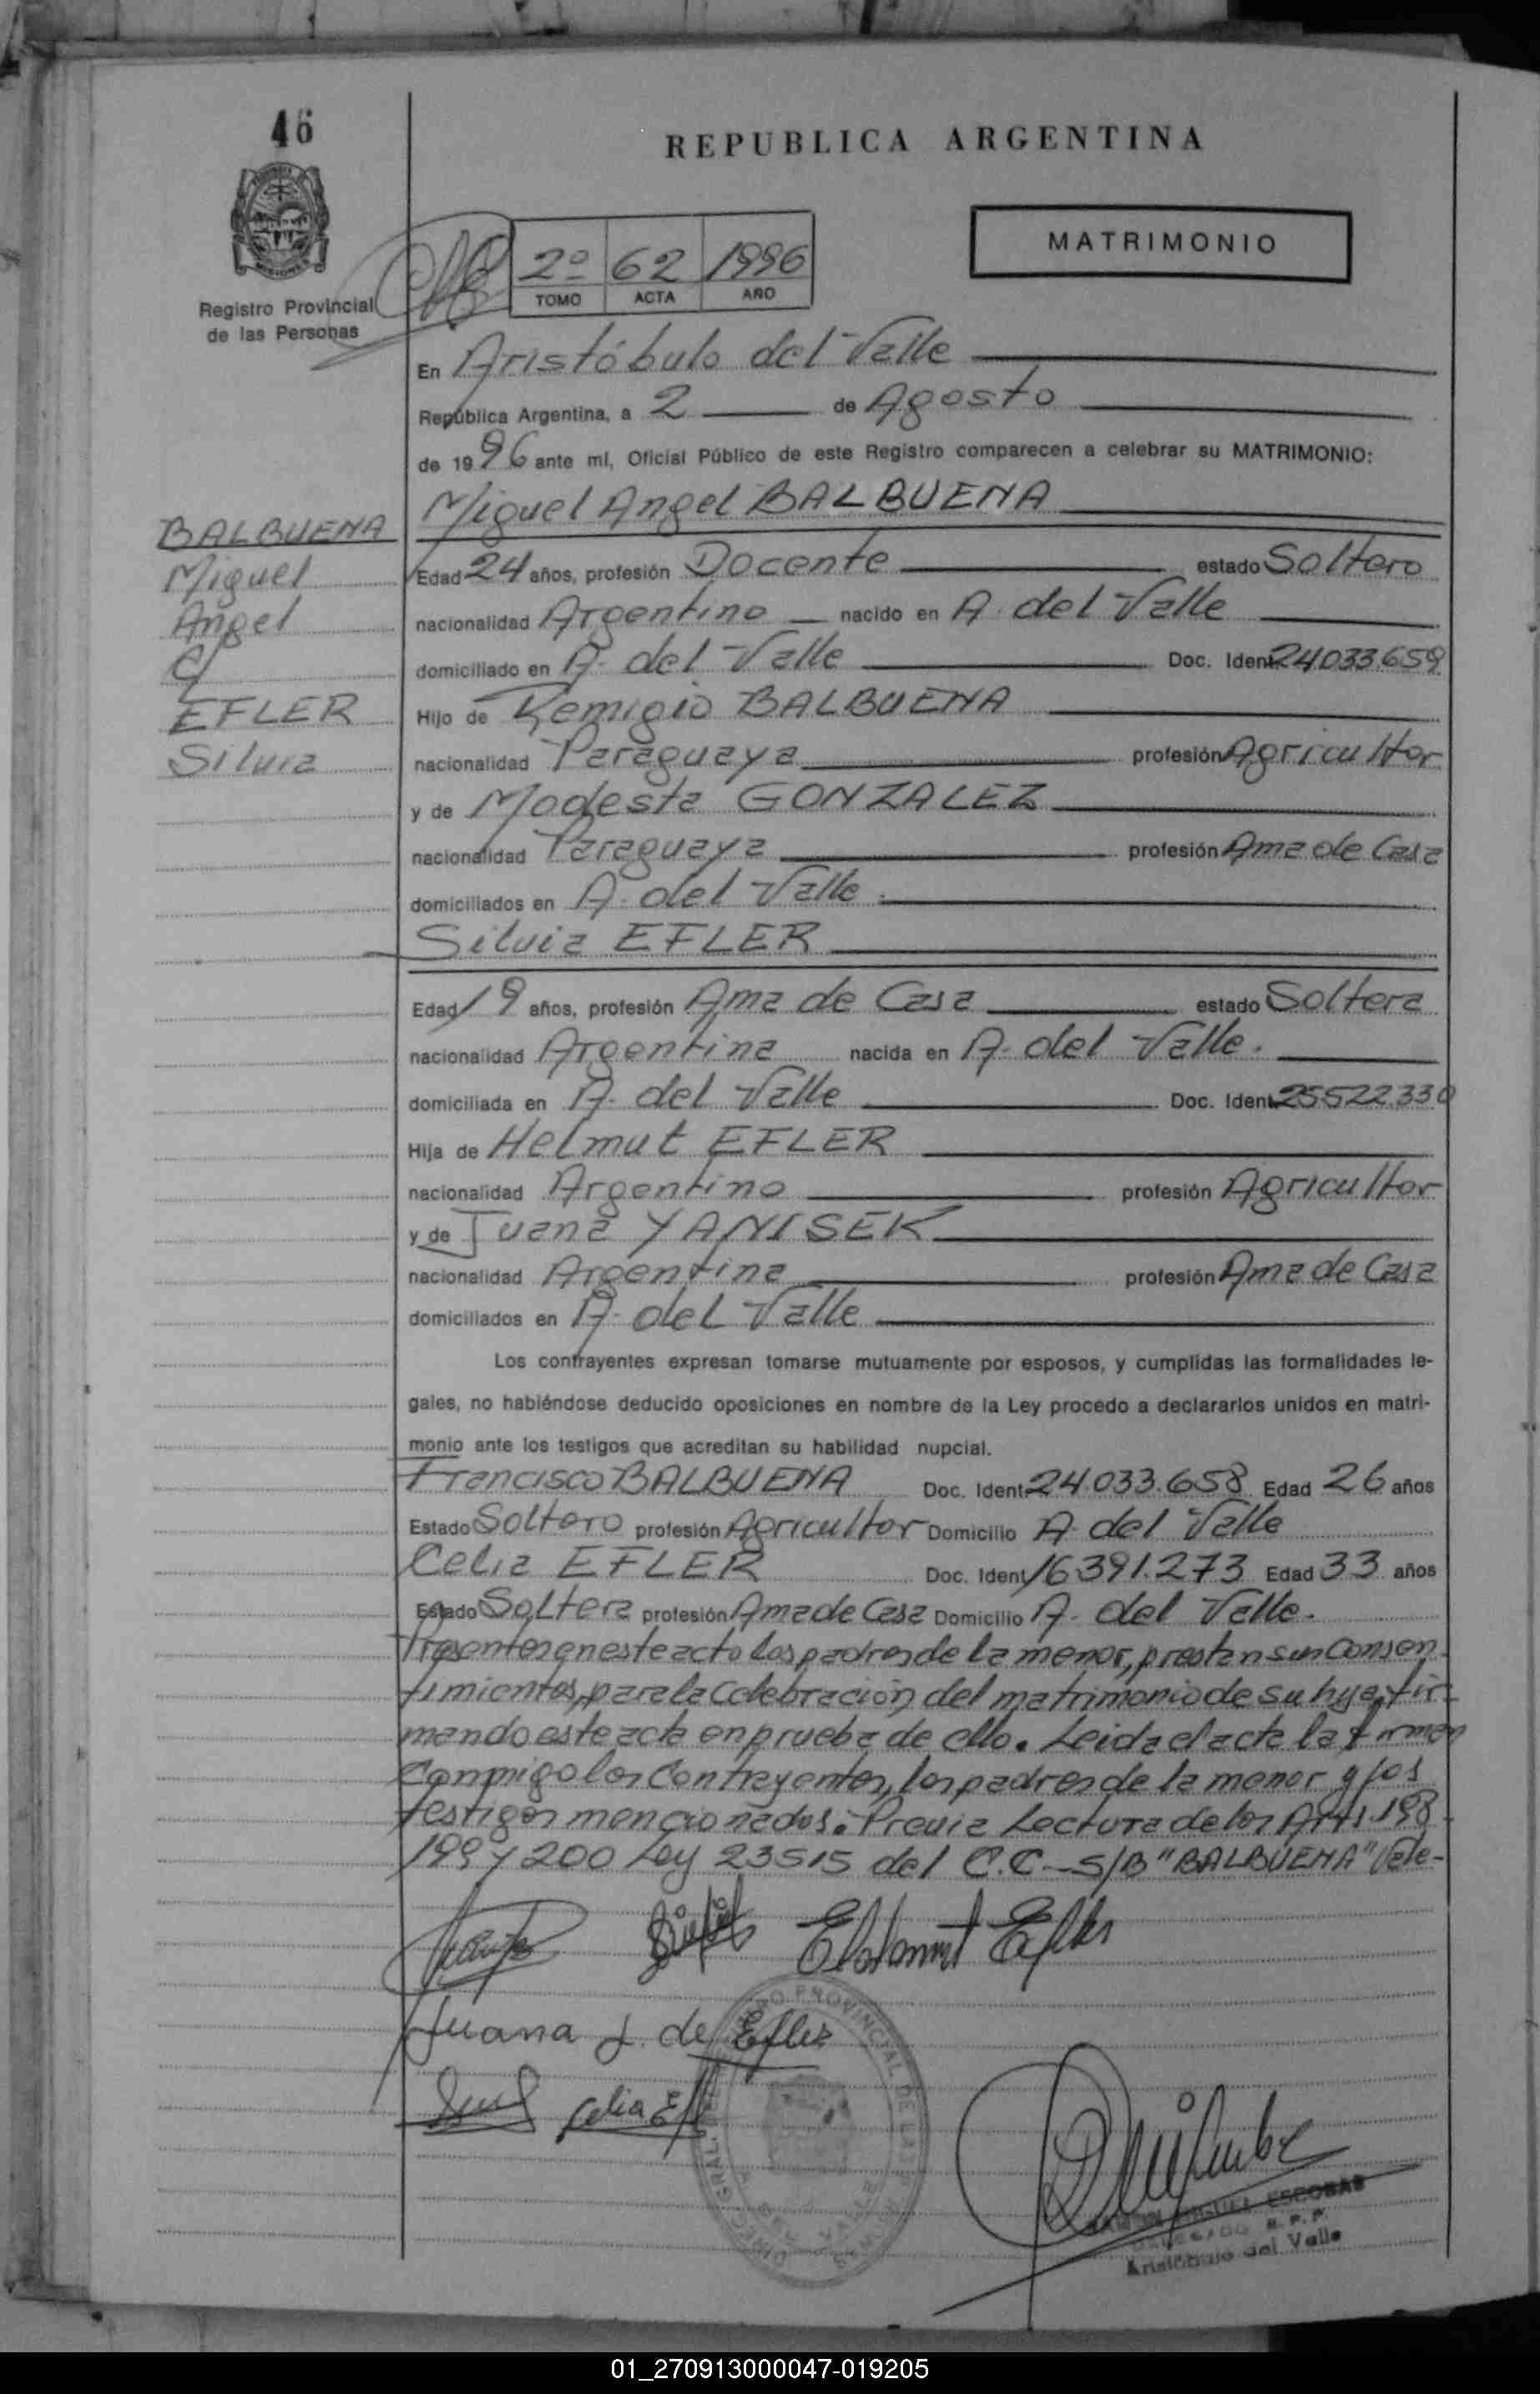 46
REPUBLICA ARGENTINA
MATRIMONIO
2º 62 1996
TOMO ACTA AÑO
Registro Provincial
de las Personas
En Aristóbulo del Valle
República Argentina, a 2 de Agosto
de 1996 ante mí, Oficial Público de este Registro comparecen a celebrar su MATRIMONIO:
Miguel Angel BALBUENA
BALBUENA
Miguel
Angel
C/
EFLER
Silvia
Edad 24 años, profesión Docente estado Soltero
nacionalidad Argentino nacido en A. del Valle
domiciliado en A. del Valle Doc. Ident. 24.033.659
Hijo de Remigio BALBUENA
nacionalidad Paraguaya profesión Agricultor
y de Modesta GONZALEZ
nacionalidad Paraguaya profesión Ama de Casa
domiciliados en A. del Valle.
Silvia EFLER
Edad 19 años, profesión Ama de Casa estado Soltera
nacionalidad Argentina nacida en A. del Valle.
domiciliada en A. del Valle Doc. Ident. 25522.330
Hija de Helmut EFLER
nacionalidad Argentino profesión Agricultor
y de Juana YANISEK
nacionalidad Argentina profesión Ama de Casa
domiciliados en A. del Valle
Los contrayentes expresan tomarse mutuamente por esposos, y cumplidas las formalidades le-
gales, no habiéndose deducido oposiciones en nombre de la Ley procedo a declararlos unidos en matri-
monio ante los testigos que acreditan su habilidad nupcial.
Francisco BALBUENA Doc. Ident. 24.033.658 Edad 26 años
Estado Soltero profesión Agricultor Domicilio A. del Valle
Celia EFLER Doc. Ident. 16391.273 Edad 33 años
Estado Soltera profesión Ama de Casa Domicilio A. del Valle.
Presentes en este acto los padres de la menor, prestan sus Consen
timientos, para la Celebración del matrimonio de su hija, fir-
mando este acta en prueba de ello. Leida el acta la firman
Conmigo los Contrayentes, los padres de la menor y los
testigos mencionados. Previa Lectura de los Arts. 198
199 y 200 Ley 23515 del C.C.- S/B "BALBUENA" Vale-
Juana J. de Efler
Celia Efl
ESCOBAR
DELEGADO R.P.P.
Aristóbulo del Valle
01_270913000047-019205